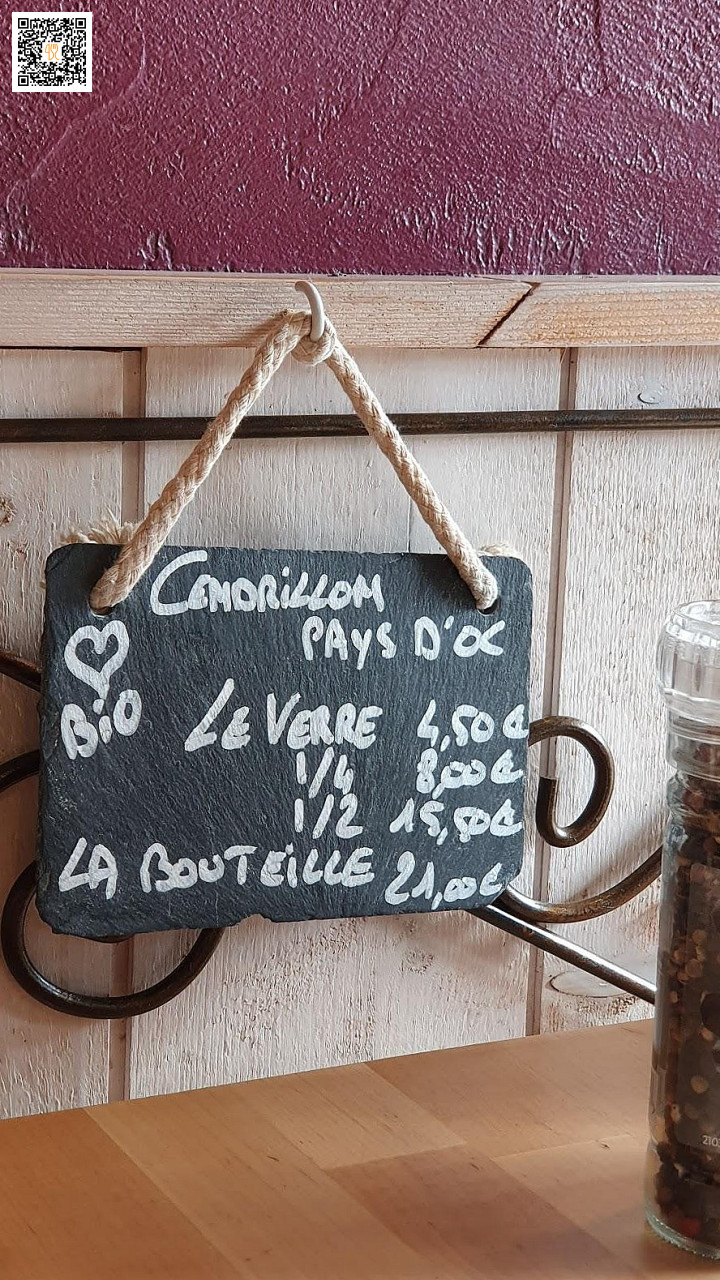 CENDRILLON
PAYS D'OC
BiO
LE VERRE 4,50 €
1/4 8,00 €
1/2 15,00 €
LA BOUTEiLLE 21,00 €